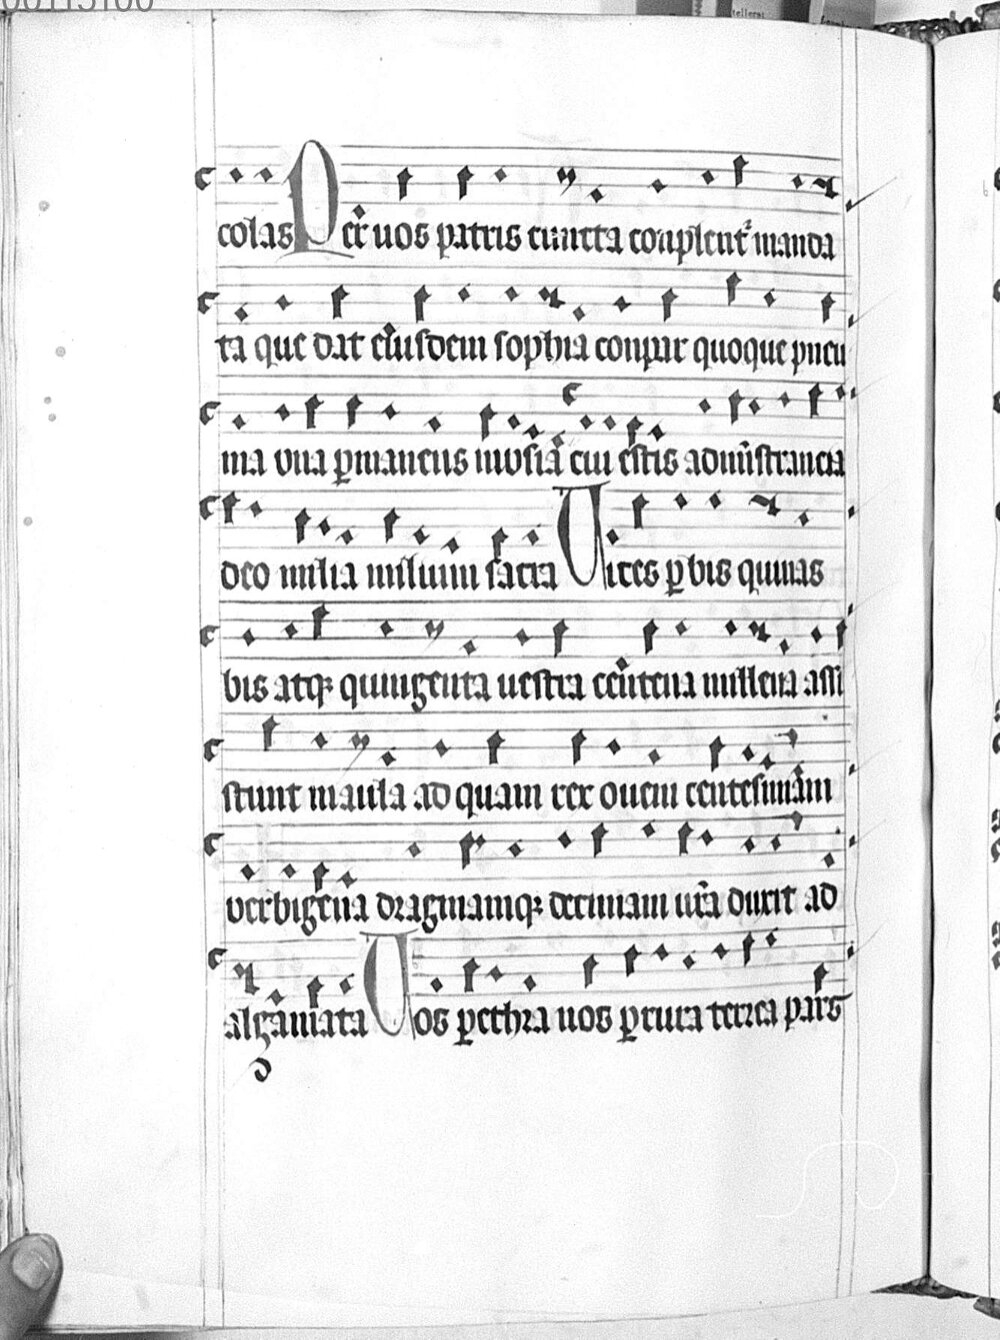 00113100
tellers:
colas Per uos patris cuncta complent̉ manda
ta que dat eiusdem sophia conpar quoque pneu
ma una ꝑmanens in usia cui estis administrancia
deo milia milium sacra Uices ꝑ bis quinas
bis atqꝫ quingenta uestra centena millena assi
stunt in aula ad quam rex ouem centesimam
verbigena dragmamqꝫ decimam ur̄a duxit ad
algamata Uos ꝑ ethra nos ꝑ rura terrea pars